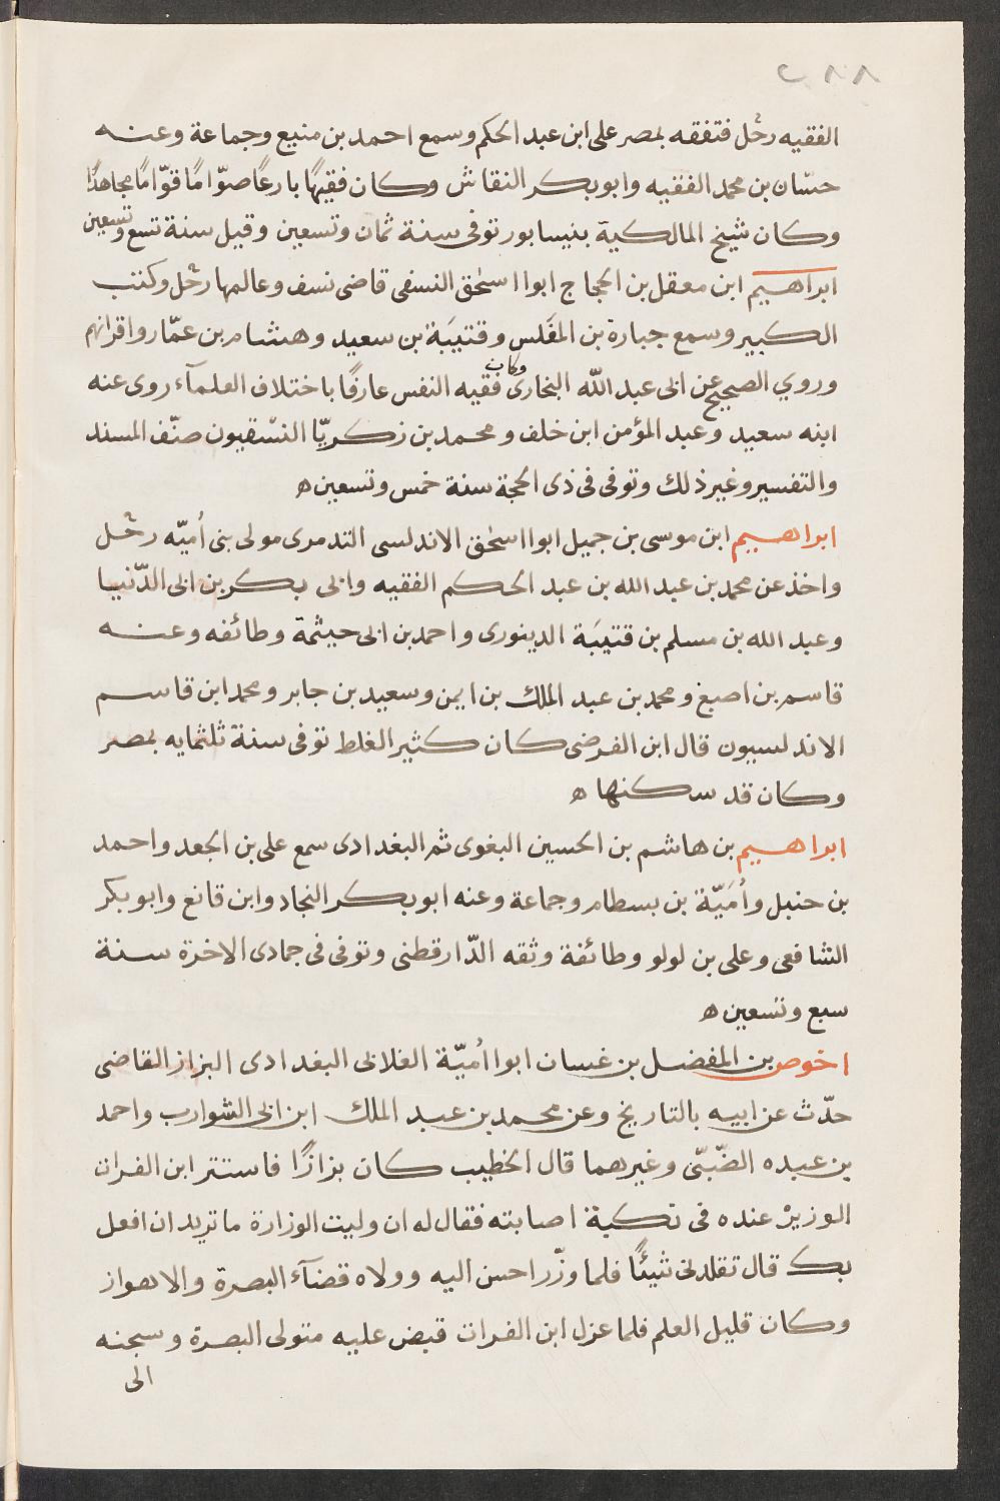 ٢٨٨
الفقيه رحُل فتفقه بمصر على ابن عبد الحكم وسمع احمد بن منيع وجماعة وعنه
حسّان بن محمد الفقيه وابو بكر النقاش وكان فقيهًا بارعًا صوّامًا قوّامًا مجاهدًا
وكان شيخ المالكية بنيسابور توفى سنة ثمان وتسعين وقيل سنة تسع وتسعين
ابراهيم ابن معقل بن الحجاج ابوا اسحٰق النسفى قاضى نسف وعالمها رحُل وكتب
الكبير وسمع جبارة بن المغَلس وقتيبَة بن سعيد وهشام بن عمّار واقرانهم
وروي الصحيح عن ابى عبد اللّه البخارى وكان فقيه النفس عارفًا باختلاف العلمآء روى عنه
ابنه سعيد وعبد المؤمن ابن خلف ومحمد بن زكريّا النسْفيون صنّف المسند
والتفسير وغير ذلك وتوفى فى ذى الحجة سنة خمس وتسعين ه
ابراهيم ابن موسى بن جميل ابوا اسحٰق الاندلسى التدمرى مولى بنى اُميّه رحُل
واخذ عن محمد بن عبد الله بن عبد الحكم الفقيه وابى بكر بن ابى الدّنيا
وعبد الله بن مسلم بن قتيبَة الدينورى واحمد بن ابى حيثمة وطائفه وعنه
قاسم بن اصبغ ومحمد بن عبد الملك بن ايمن وسعيد بن جابر ومحمد ابن قاسم
الاندلسيون قال ابن الفرضى كان كثير الغلط توفى سنة ثلثمايه بمصر
وكان قد سكنها ه
ابراهيم بن هاشم بن الحسين البغوى ثم البغدادى سمع على بن الجعد واحمد
بن حنبل واُمَيّة بن بسطام وجماعة وعنه ابو بكر النجاد وابن قانع وابو بكر
الشافعى وعلى بن لولو وطائفة وثقه الدّارقطنى وتوفى فى جمادى الاخرة سنة
سبع وتسعين ه
اخوص بن المفضل بن غسان ابوا اُميّة الغلابى البغدادى البزاز القاضى
حدّث عن ابيه بالتاريخ وعن محمد بن عبد الملك ابن ابى الشوارب واحمد
بن عبده الضّبّى وغيرهما قال الخطيب كان بزازًا فاستتر ابن الفرات
الوزير عنده فى نكبة اصابته فقال له ان وليت الوزارة ما تريد ان افعل
بك قال تقلدنى شيئًا فلما وزّر احسن اليه وولاه قضآء البصرة والاهواز
وكان قليل العلم فلما عزل ابن الفرات قبض عليه متولى البصرة وسجنه
الى